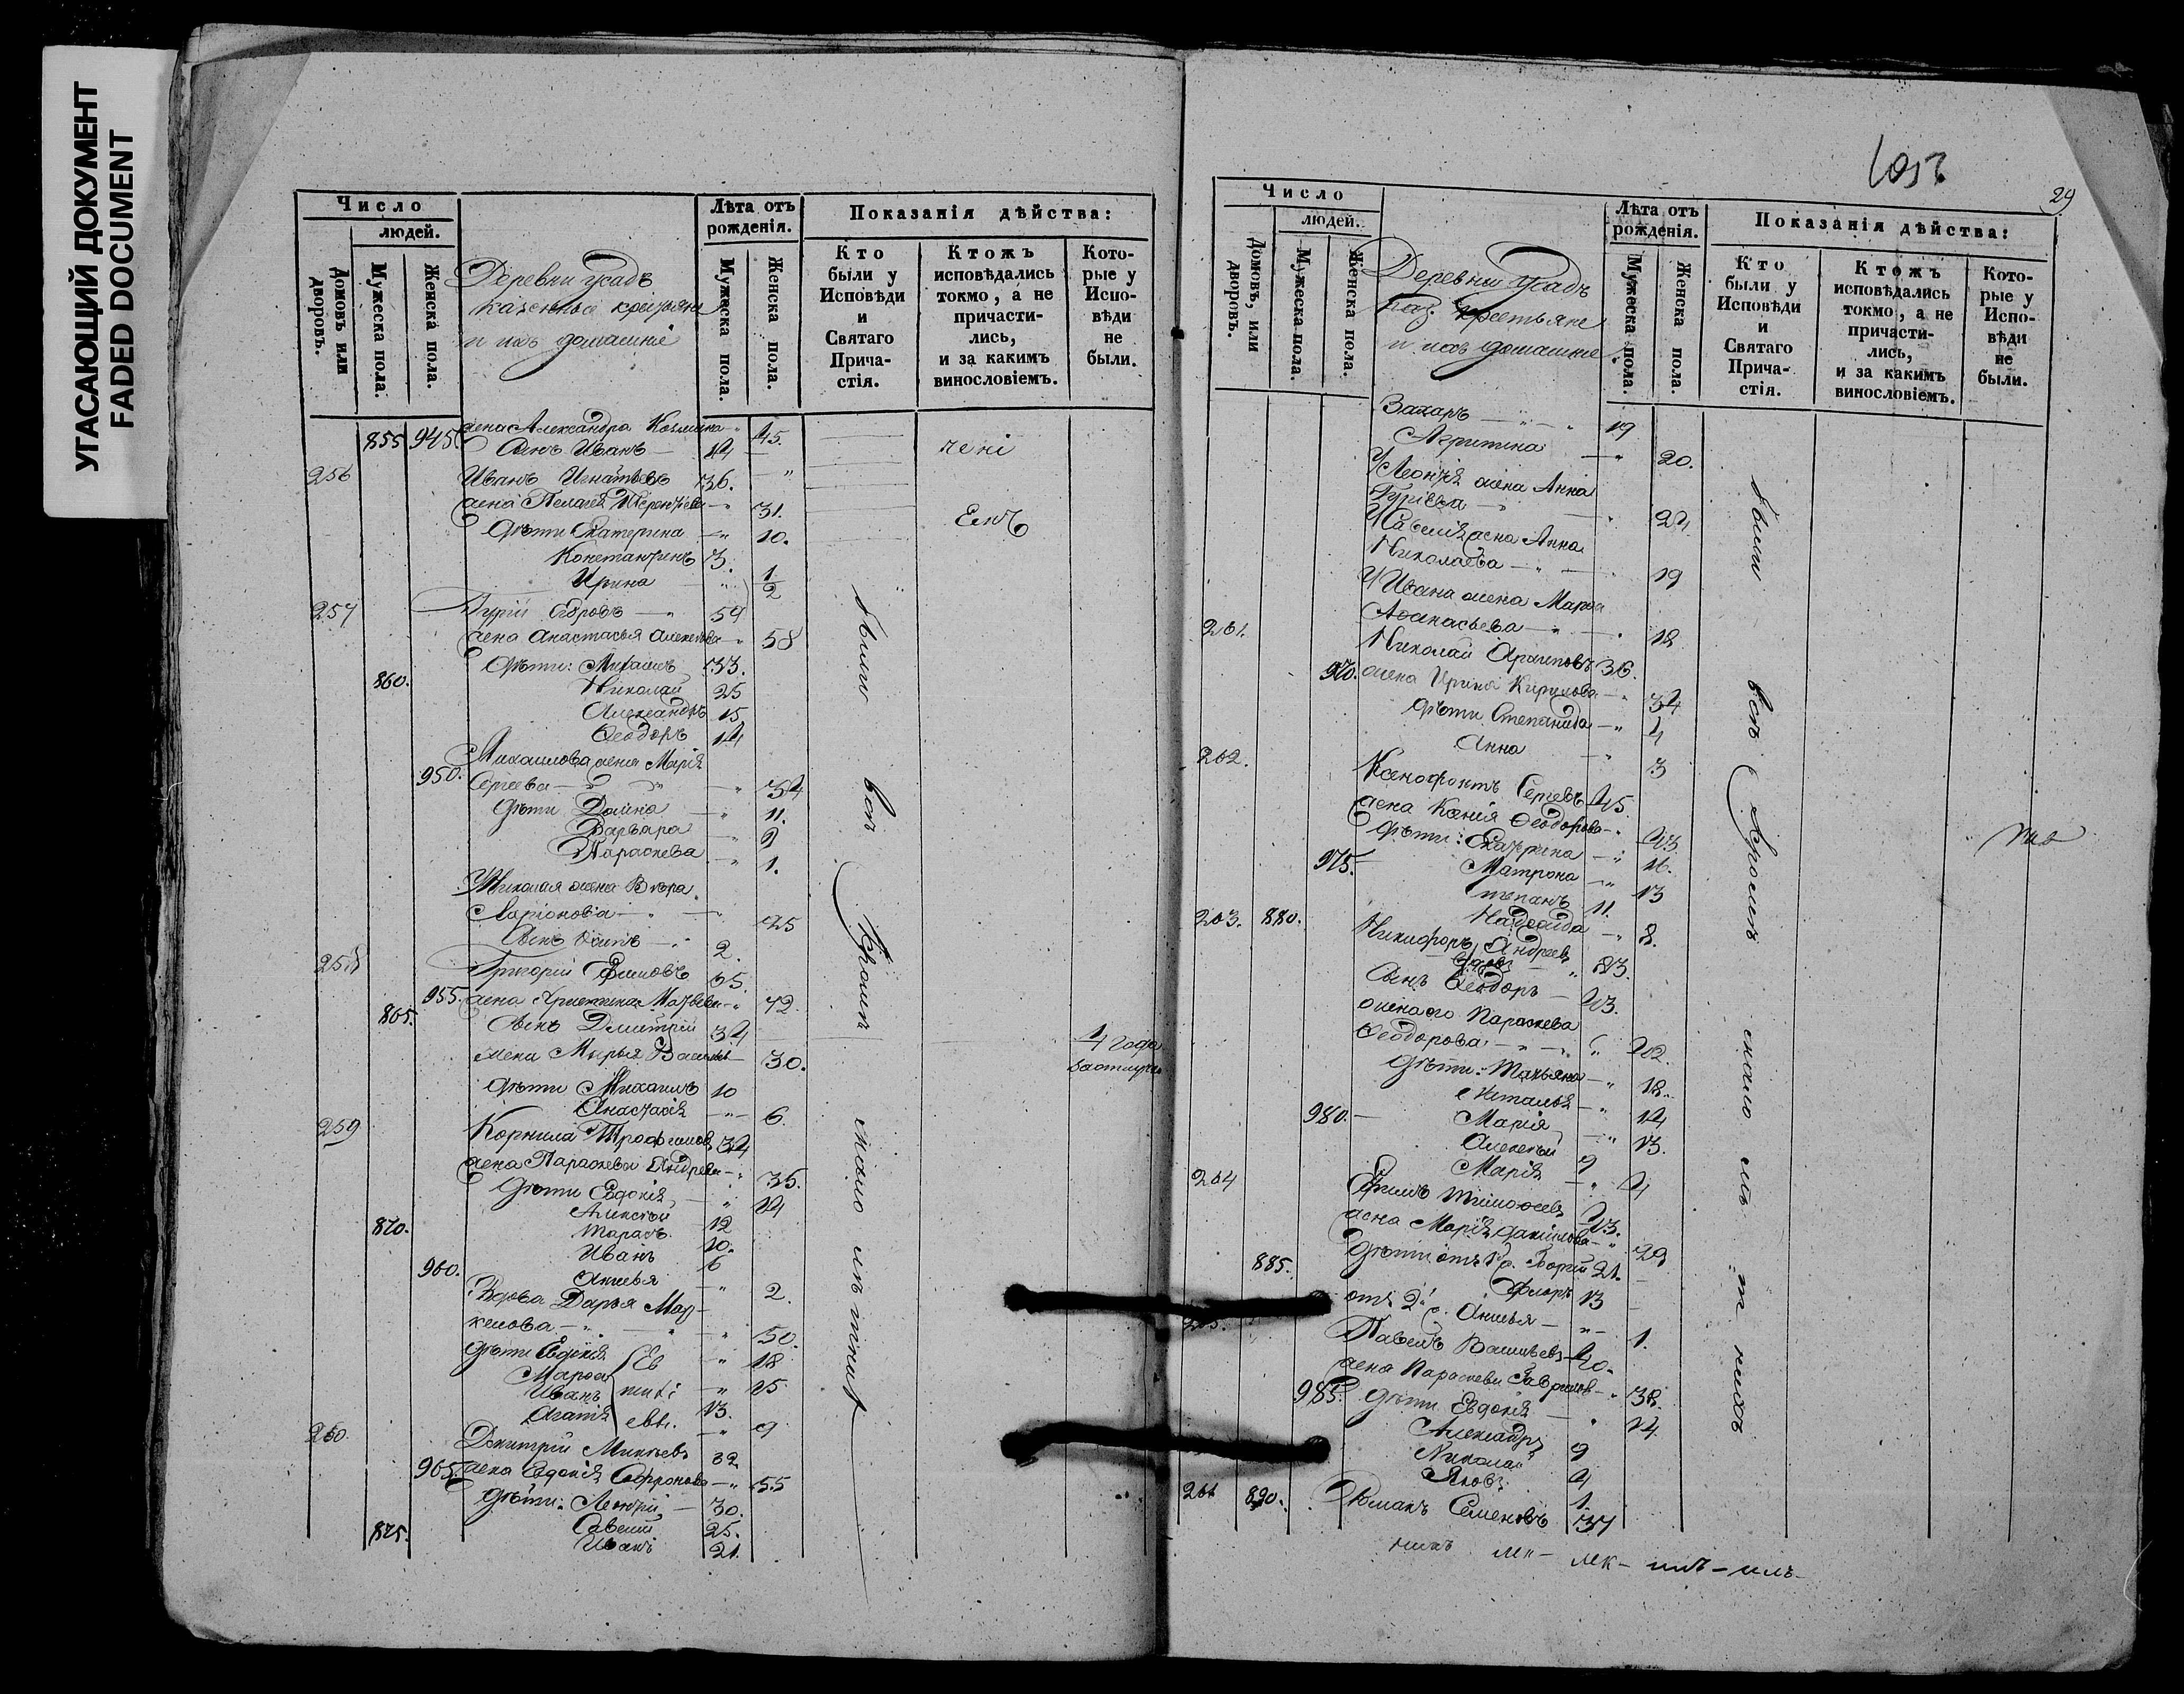 УГАСАЮЩИЙ ДОКУМЕНТ
FADED DOCUMENT
Число
людей.
Домовъ или дворовъ.
Мужеска пола.
Женска пола.
Деревни Усадъ
казенные крестьяне
и ихъ домашніе
Лѣта отъ рожденія.
Мужеска пола.
Женска пола.
Показанія дѣйства:
Кто были у Исповѣди и Святаго Прича-стія.
Ктожъ исповѣдались токмо, а не причасти-лись, и за какимъ винословіемъ.
Кото-рые у Испо-вѣди не были.
855 945 жена Александра Козмина 45.
Сынъ Иванъ 14
256 Иванъ Игнатьевъ 36.
жена Пелагея 31.
Дѣти Екатерина 10.
Константинъ 3.
Ирина 1/2
257 Гурій 59
жена Анастасья Алексеева 58
860. Дѣти: Михаилъ 33.
Николай 25
Александръ 15
Ѳеодоръ 14
950. Михаилова жена Марія
Сергеева 34
Дѣти Домна 11.
Варвара 9
Параскева 1.
Николая жена Вѣра
Ларіонова 25
Сынъ 2.
258 Григорій Ефимовъ 65.
955. жена Христина Матвеева 72.
865. Сынъ Димитрій 34
жена Марья 30.
Дѣти Михаилъ 10
Анастасія 6.
259 Корнила Трофимовъ 34
жена Параскева Андреева 35.
Дѣти Евдокія 14
Алексѣй 12
870. Тарасъ 10.
Иванъ 6
960. Анисья 2.
Вдова Дарья Мар-
келова 50.
Дѣти Евдокія 18
Марѳа 15
Иванъ 13.
Агапія 9
260. Димитрій
965. жена Евдокія Софронова 55
Дѣти: Леонтій 30.
Савелій 25.
875. Иванъ 21.
были всѣ кромѣ мало лѣтних
4 года
29
Число
людей.
Домовъ, или дворовъ.
Мужеска пола.
Женска пола.
Деревни Усадъ
каз. крестьяне
и ихъ домашніе
Лѣта отъ рожденія.
Мужеска пола.
Женска пола.
Показанія дѣйства:
Кто были у Исповѣди и Святаго Прича-стія.
Ктожъ исповѣдались токмо, а не причасти-лись, и за какимъ винословіемъ.
Кото-рые у Испо-вѣди не были.
Захаръ 19
Агрипина 20.
У Леонтія жена Анна
Гуріева
У Савелія жена Анна
Николаева 19
У Ивана жена Марѳа
Аѳанасьева 18
261. Николай 36.
970. жена Ирина Кирилова 34
Дѣти Степанида 4
Анна 3
262. Ксенофонтъ Сергеевъ 45.
жена Ксенія Ѳеодорова 43.
Дѣти: Екатерина 16.
975. Матрона 13
Степанъ 11.
Надежда 8.
263. 880. Никифоръ Андреевъ
Сынъ Ѳеодоръ 43.
жена его Параскева
Ѳеодорова 42.
Дѣти: Татьяна 18.
Наталья 14
980. Марія 13.
Алексѣй 9
Марія 4
264 Ефимъ Тимоѳеевъ 43.
жена Марія Данилова 29
885. Дѣти 21.
Флоръ 13
отъ 2й Анисья 1.
Павелъ Васильевъ 40.
жена Параскева 38.
985. Дѣти Евдокія 14
Александръ 9
Николай 4
Яковъ 1.
266 890. Романъ Семеновъ 37
были всѣ кромѣ мало лѣтнихъ